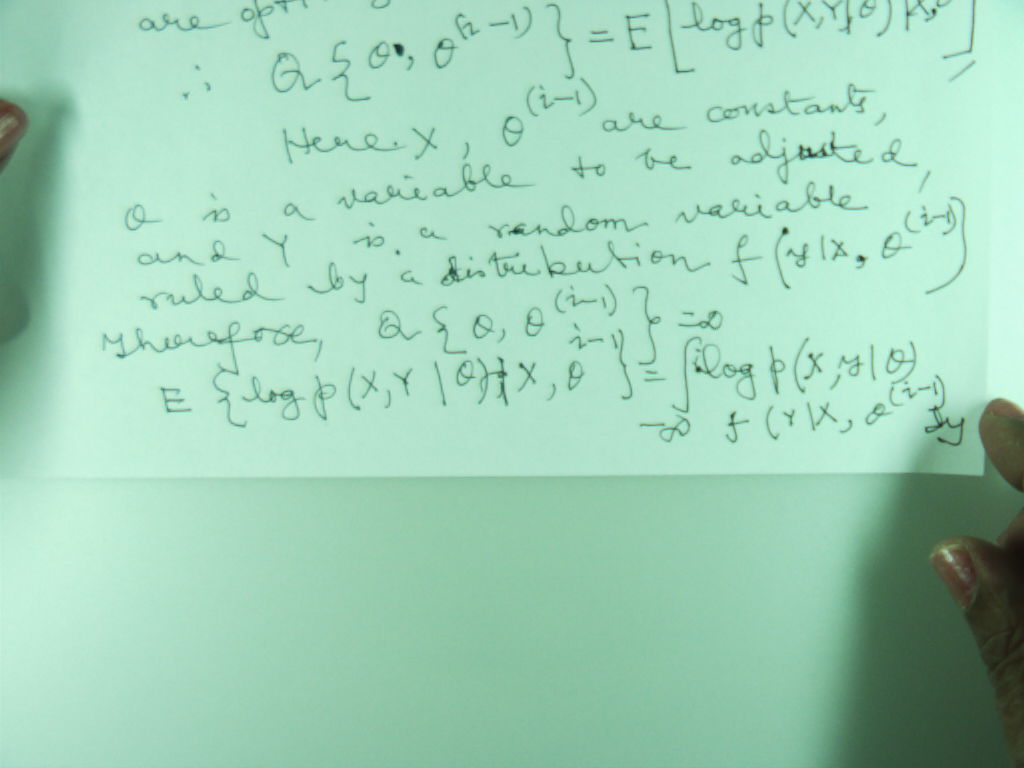 are
∴ Q { θ, θ^(i-1) } = E [ log p(X,Y|θ) | X,
Here X, θ^(i-1) are constants,
θ is a variable to be adjusted,
and Y is a random variable
ruled by a distribution f (y|X, θ^(i-1))
Therefore, Q { θ, θ^(i-1) } =∞
E { log p (X,Y | θ) | X, θ^i-1) } = ∫ log p (X, y | θ)
-∞ f (Y|X, θ^(i-1) dy